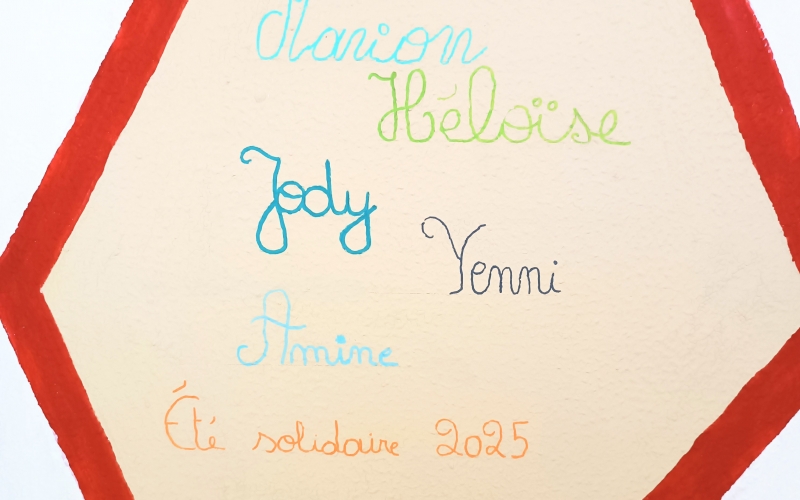 Marion
Héloïse
Jody
Yenni
Amine
Été solidaire 2025